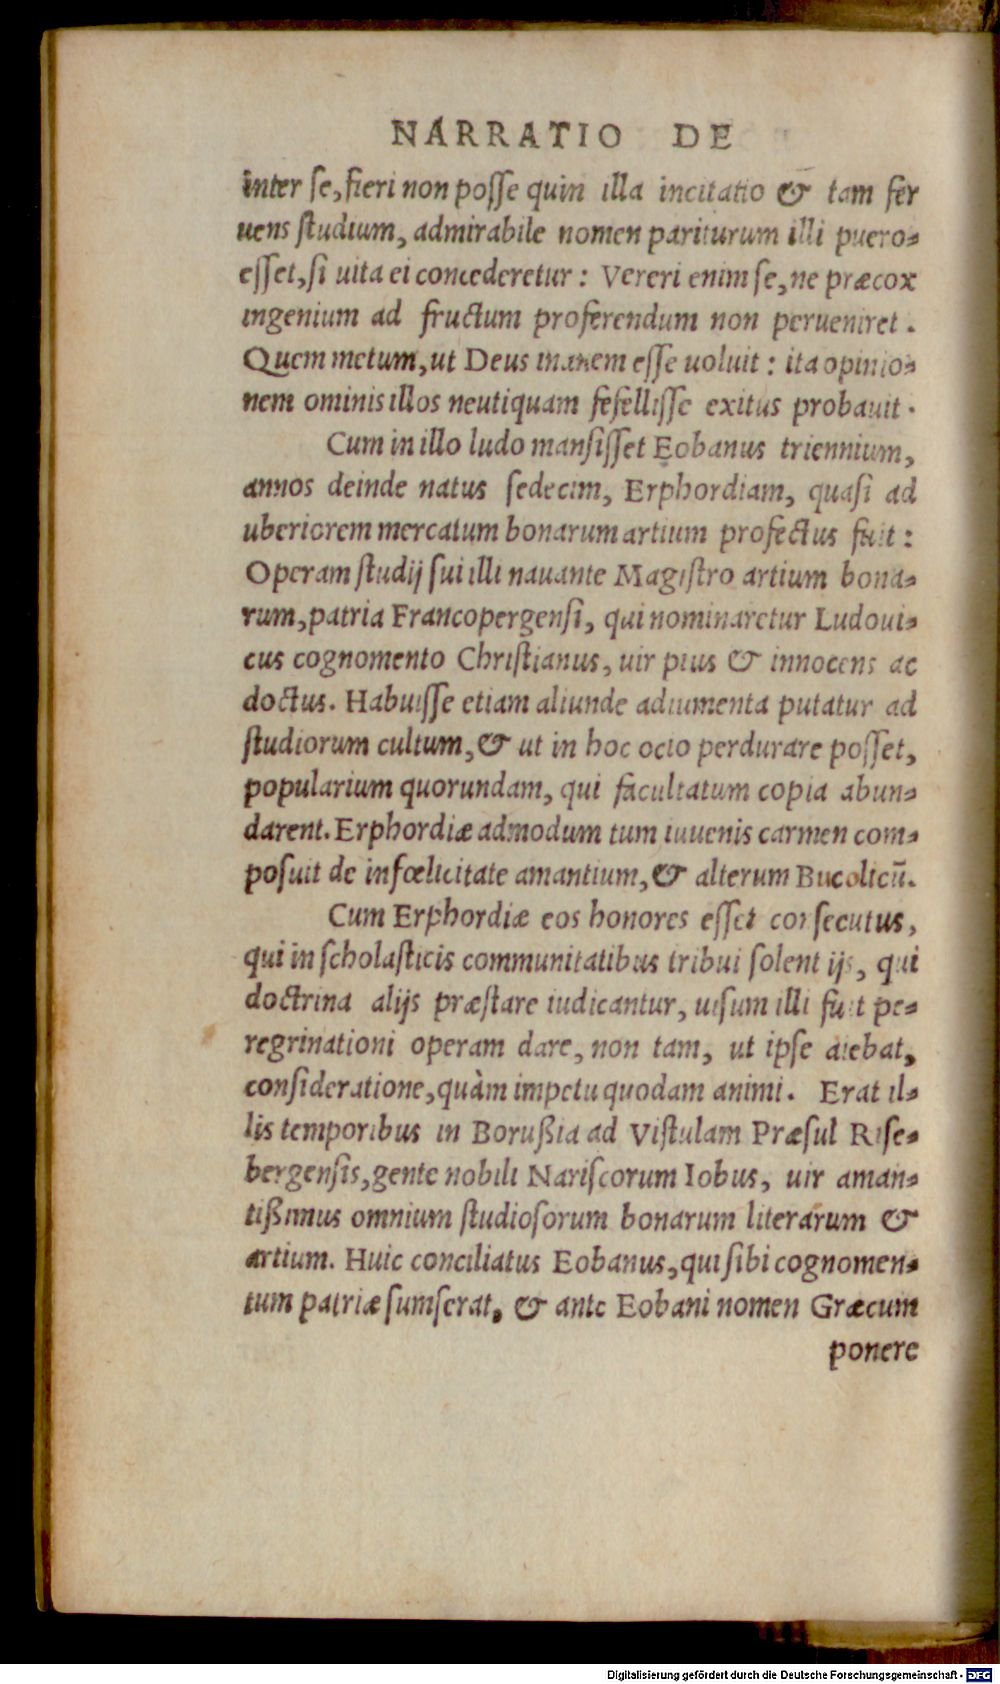 NARRATIO DE
inter se, fieri non posse quin illa incitatio & tam fer
uens studium, admirabile nomen pariturum illi puero-
esset, si uita ei concederetur: Vereri enim se, ne præcox
ingenium ad fructum proferendum non perueniret.
Quem metum, ut Deus inanem esse uoluit: ita opinio-
nem ominis illos neutiquam fefellisse exitus probauit.
Cum in illo ludo mansisset Eobanus triennium,
annos deinde natus sedecim, Erphordiam, quasi ad
uberiorem mercatum bonarum artium profectus fuit:
Operam studij sui illi nauante Magistro artium bona-
rum, patria Francopergensi, qui nominaretur Ludoui-
cus cognomento Christianus, uir pius & innocens ac
doctus. Habuisse etiam aliunde adiumenta putatur ad
studiorum cultum, & ut in hoc ocio perdurare posset,
popularium quorundam, qui facultatum copia abun-
darent. Erphordiæ admodum tum iuuenis carmen com-
posuit de infœlicitate amantium, & alterum Bucolicū.
Cum Erphordiæ eos honores esset consecutus,
qui in scholasticis communitatibus tribui solent ijs, qui
doctrina alijs præstare iudicantur, uisum illi fuit pe-
regrinationi operam dare, non tam, ut ipse aiebat,
consideratione, quàm impetu quodam animi. Erat il-
lis temporibus in Borußia ad Vistulam Præsul Rise-
bergensis, gente nobili Nariscorum Iobus, uir aman-
tißimus omnium studiosorum bonarum literarum &
artium. Huic conciliatus Eobanus, qui sibi cognomen-
tum patriæ sumserat, & ante Eobani nomen Græcum
ponere
Digitalisierung gefördert durch die Deutsche Forschungsgemeinschaft - DFG